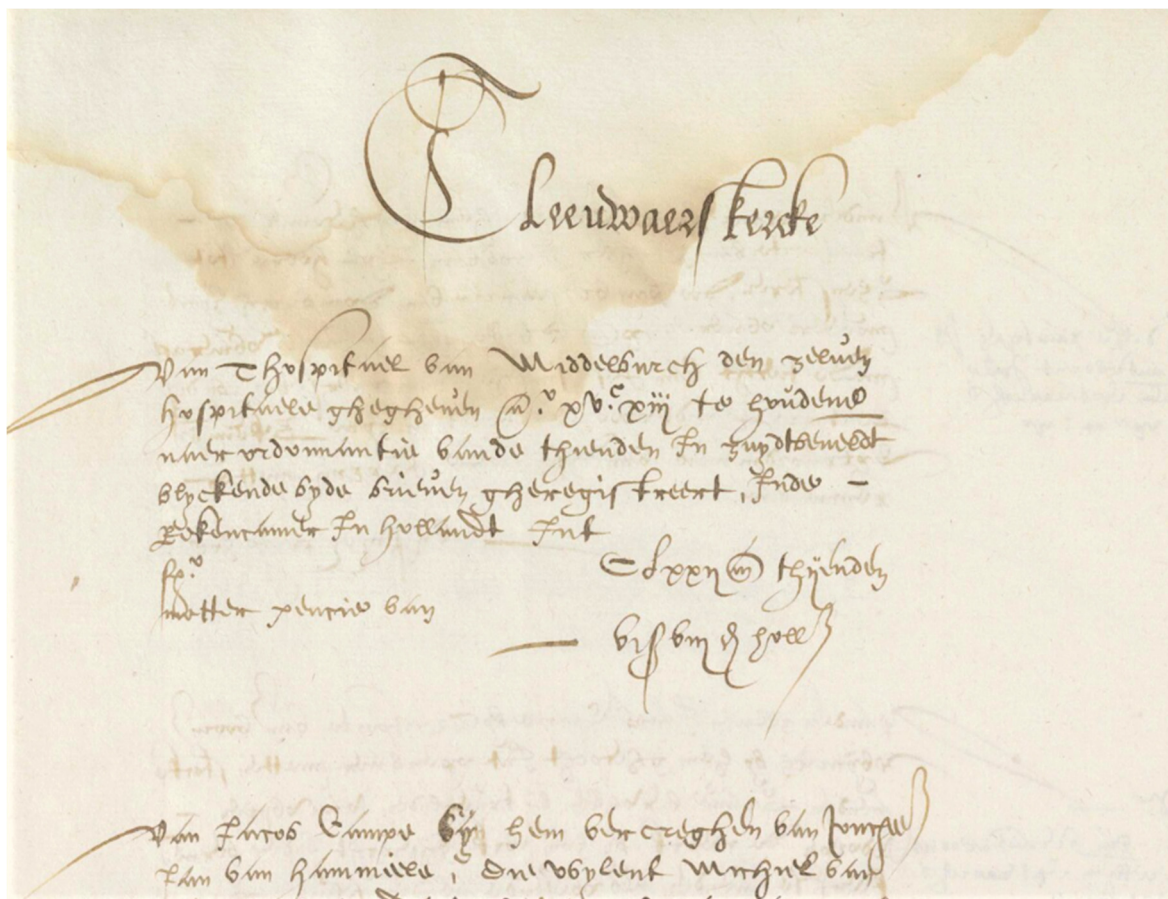 T Cleeuwaerskercke
Van Thospitael van Middelburch den zeluen
hospitaele ghegheuen a.º xv.ᶜ xiij te houdene
naer ordonnantie vande thienden In zuydtbeuelt
blyckende byde brieuen gheregistreert, Inde -
Rekencamer In hollandt Int
fº
metter pencie van
thyenden
holl
van Jacob Campe by hem vercreghen van Jonchee
Jan van hammiele, die wylent Michiel van